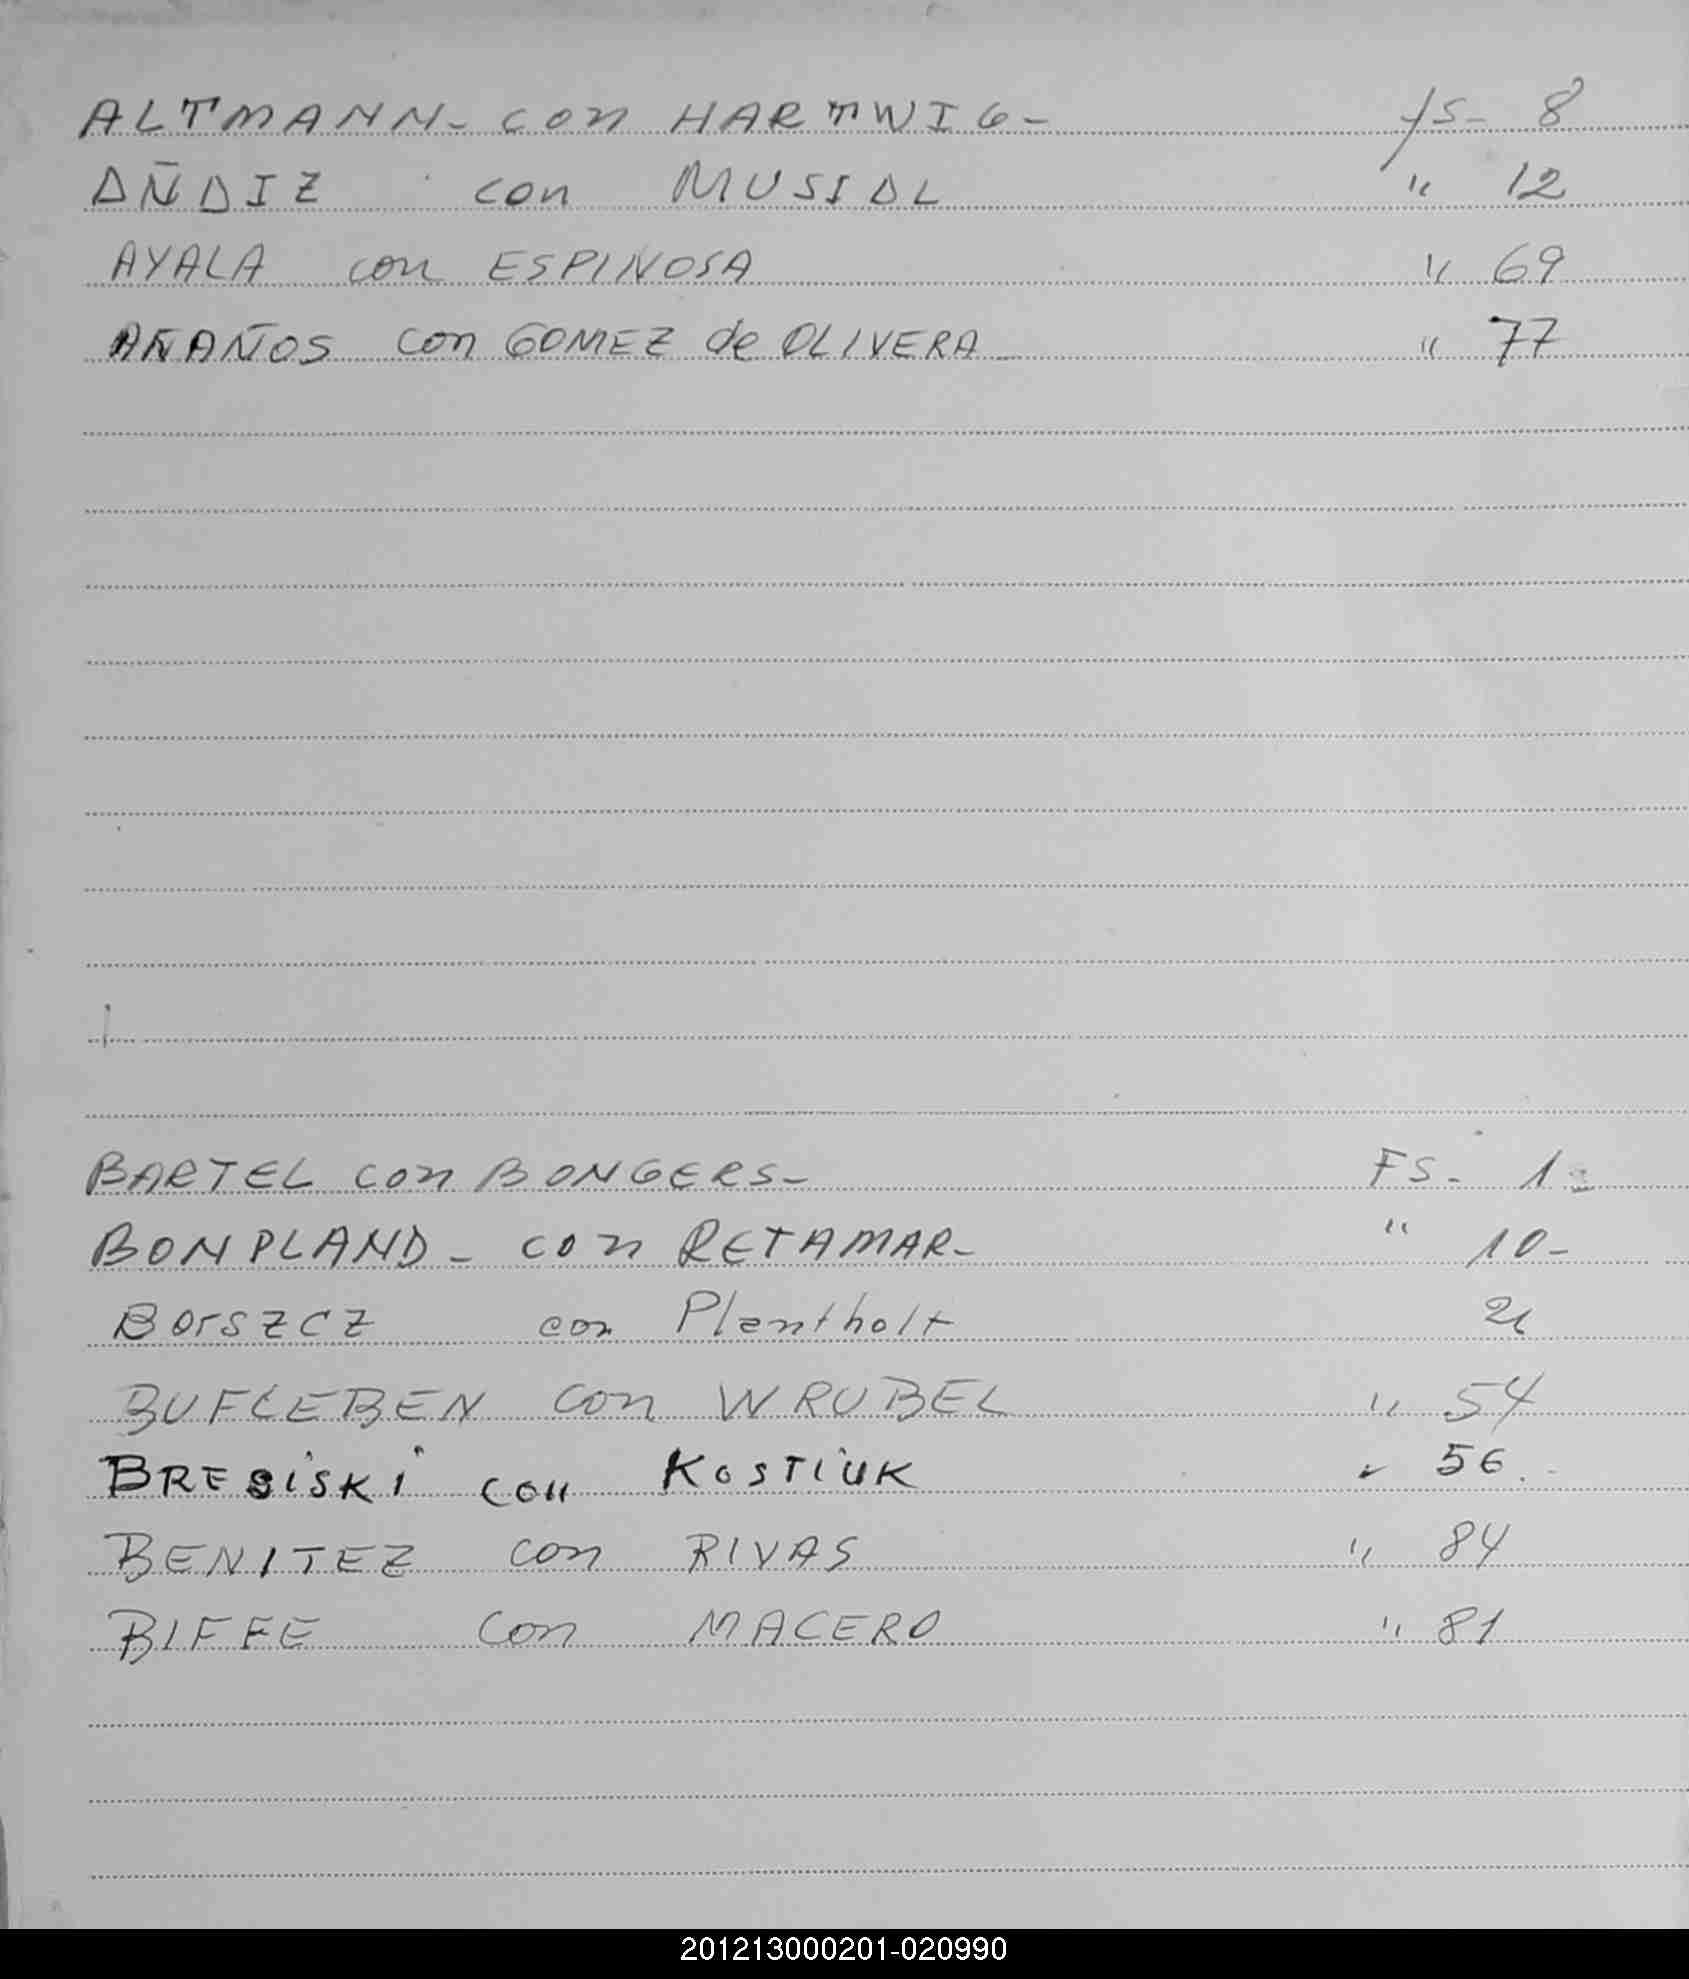 ALTMANN - con HARTWIG - fs - 8
AÑAIZ con MUSIAL " 12
AYALA con ESPINOSA " 69
AÑAÑOS con GOMEZ de OLIVERA " 77
BARTEL con BONGERS - FS - 1 -
BONPLAND - con RETAMAR - " 10 -
BorSZCZ con Plentholt
BUFLEBEN con WRUBEL " 54
BRESiSKi con KOSTiUK " 56.
BENITEZ con RIVAS " 84
BIFFE con MACERO " 81
201213000201-020990